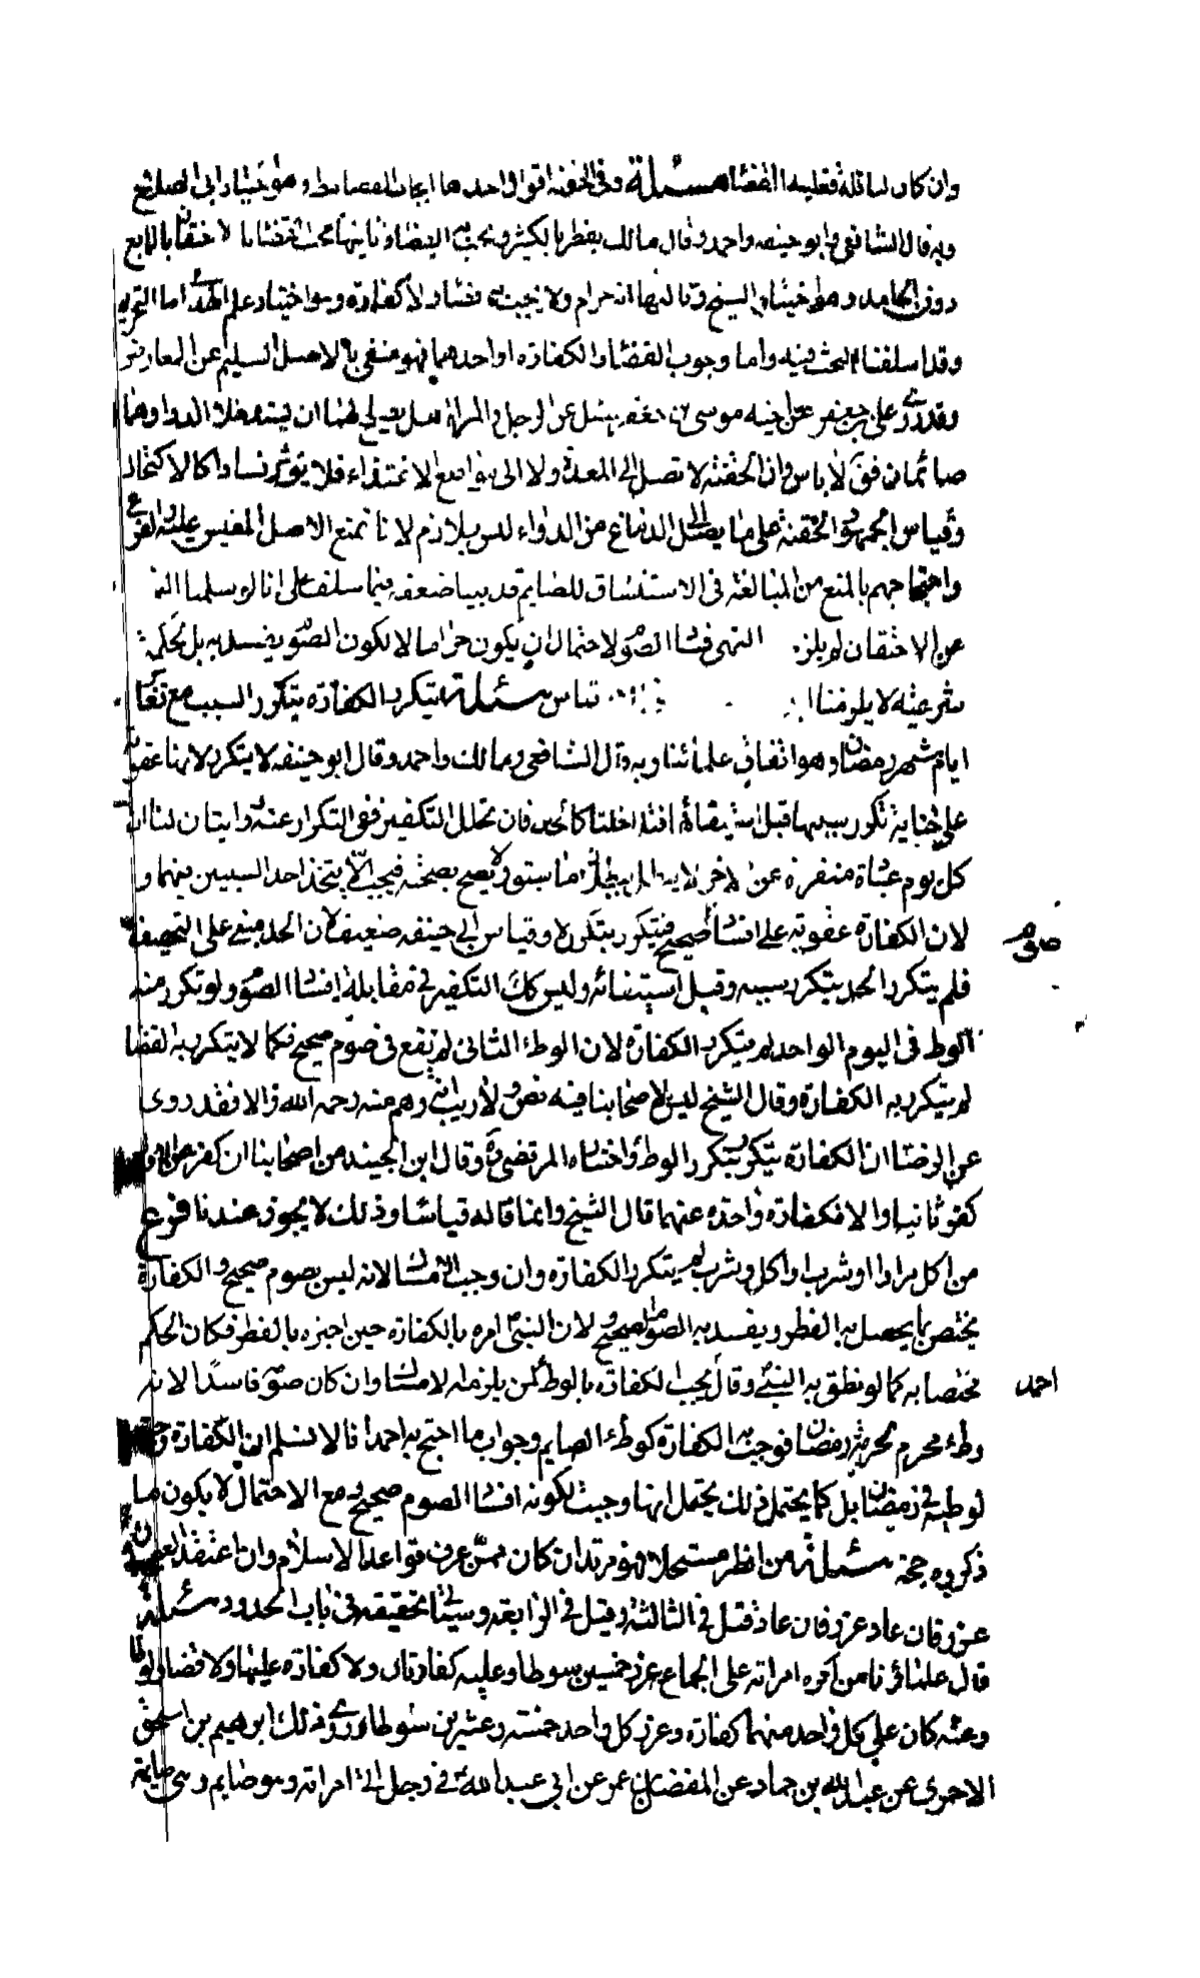 وان كان لنافلة فعليه القضاء مسئلة وفي الحقنة اقوال احدها ايجاب القضاء وهو اختيار ابي الصلاح
وبه قال الشافعي وابو حنيفه واحمد وقال مالك يفطر بالكثير ويجب به القضاء وثانيها يجب القضاء بالاحتقان بالمايع
دون الجامد وهو اختيار الشيخ وثالثها انه حرام ولا يجب به قضاء ولا كفارة وهو اختيار علم الهدى اما التحريم
وقد اسلفنا البحث فيه واما وجوب القضاء والكفارة او احدهما فهو منفي بالاصل السليم عن المعارض
وقد روى علي بن جعفر عن اخيه موسى بن جعفر يسئل عن الرجل والمراة هل يصلح لهما ان يستدخلا الدوا وهما
صائمان فق لا باس وان الحقنة لا تصل الى المعدة ولا الى مواضع الاغتذاء فلا يؤثر فسادا كالاكتحال
وقياس الجمهور الحقنة على ما يصل الى الدماغ من الدواء ليس بلازم لانا نمنع الاصل المقيس عليه والفرع
واحتجاجهم بالمنع من المبالغة في الاستنشاق للصايم قد بينا ضعفه فيما سلف على انا لو سلمنا النهي
عن الاحتقان لم يلزم النهي فساد الصوم لاحتمال ان يكون حراما لا لكون الصوم يفسد به بل لحكمة
شرعية لا يلزمنا قياس مسئلة يتكرر الكفارة بتكرر السبب مع تغاير
ايام شهر رمضان وهو اتفاق علمائنا وبه قال الشافعي ومالك واحمد وقال ابو حنيفه لا يتكرر لانها عقوبة
على جناية تكرر سببها قبل استيفائه فتداخلتا كالحد فان تخلل التكفير ففي التكرار عنه روايتان لنا ان
كل يوم عبادة منفردة عن الاخر لا يبطل ببطلان ما سبق ولا يصح بصحته فيجب الا يتحد احد السببين فيهما و
لان الكفارة عقوبة على افساد صوم صحيح فيتكرر بتكرره وقياس ابي حنيفه ضعيف لان الحد مبني على التخفيف
فلم يتكرر الحد بتكرر سببه وقبل استيفائه وليس كك التكفير في مقابلة افساد الصوم ولو تكرر منه
الوطء في اليوم الواحد لم يتكرر الكفارة لان الوطء الثاني لم يقع في صوم صحيح فكما لا يتكرر به القضا
لم يتكرر به الكفارة وقال الشيخ ليس لاصحابنا فيه نص ولا ريب انه وهم منه رحمه الله والا فقد روى
عن الرضا ان الكفارة يتكرر بتكرر الوطء واختاره المرتضى ره وقال ابن الجنيد من اصحابنا ان كفر عن الاول
كفر ثانيا والا فكفارة واحدة عنهما قال الشيخ وانما قاله قياسا وذلك لا يجوز عندنا فرع
من اكل مرارا او شرب او اكل وشرب لم يتكرر الكفارة وان وجب الامساك لانه ليس بصوم صحيح والكفارة
يختص بما يحصل به الفطر ويفسد به الصوم الصحيح ولان النبي امره بالكفارة حين اخبره بالفطر فكان الحكم
مختصا به كما لو نطق به النبي وقال يجب الكفارة بالوطء لمن يلزمه الامساك وان كان صومه فاسدا لانه
احمد
وطء محرم لحرمة رمضان فوجبت به الكفارة كوطء الصايم وجواب ما احتج به احمد انا لا نسلم ان الكفارة وجبت
لوطيه في رمضان بل كما يحتمل ذلك يحتمل انها وجبت لكونه افسد الصوم صحيح ومع الاحتمال لا يكون ما
ذكروه حجة مسئلة من افطر مستحلا فهو مرتد ان كان ممن عرف قواعد الاسلام وان اعتقد العصيان
عزر فان عاد عزر فان عاد قتل في الثالثة وقيل في الرابعة وسياتي تحقيقه في باب الحدود مسئلة
قال علمائنا من اكره امراته على الجماع عزر خمسين سوطا وعليه كفارتان ولا كفارة عليها ولا قضاء ولو طا
وعته كان على كل واحد منهما كفارة وعزر كل واحد خمسة وعشرين سوطا وروى ذلك ابرهيم بن اسحق
الاحمري عن عبد الله بن حماد عن المفضل بن عمر عن ابي عبد الله ع في رجل اتى امراته وهو صايم وهي صايمة